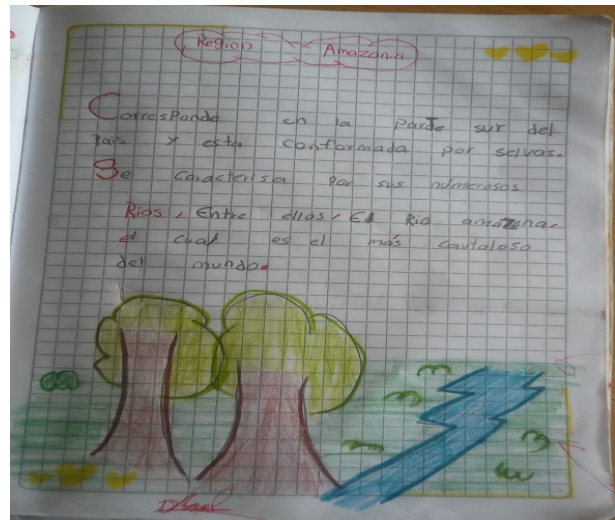 Region Amazonia
Corresponde en la parde sur del
Pais y esta conformada por selvas.
Se caracterisa por sus númerosos
Rios, Entre ellos, El Rio amazona,
el cual es el más cautaloso
del mundo.